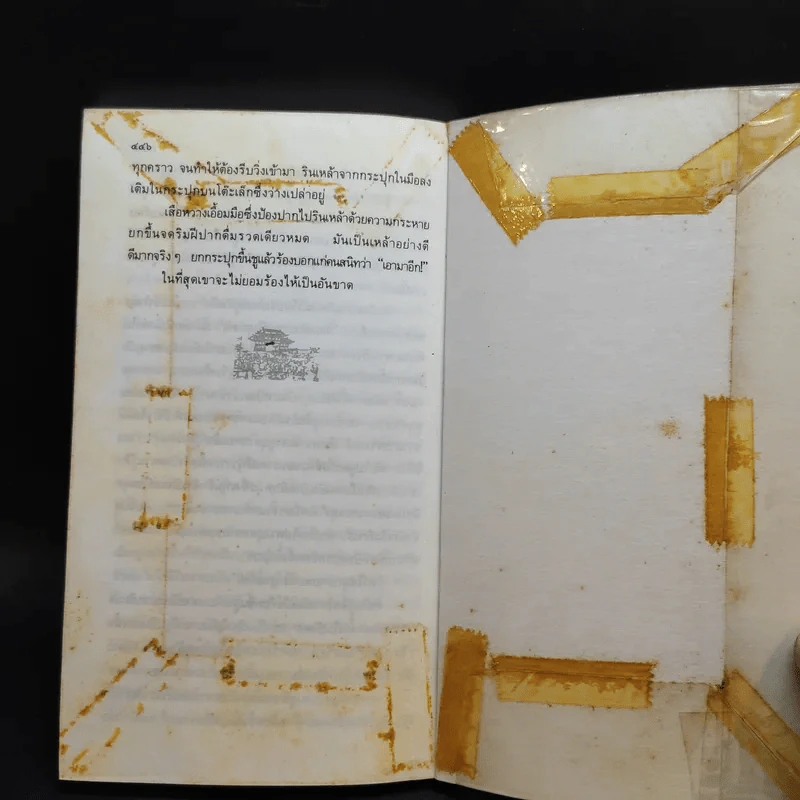 ๔๔๖
ทุกคราว จนทำให้ต้องรีบวิ่งเข้ามา รินเหล้าจากกระปุกในมือลง
เติมในกระปุกบนโต๊ะเล็กซึ่งว่างเปล่าอยู่
เสือหวางเอื้อมมือซึ่งป้องปากไปรินเหล้าด้วยความกระหาย
ยกขึ้นจดริมฝีปากดื่มรวดเดียวหมด มันเป็นเหล้าอย่างดี
ดีมากจริง ๆ ยกกระปุกขึ้นชูแล้วร้องบอกแก่คนสนิทว่า “เอามาอีก!”
ในที่สุดเขาจะไม่ยอมร้องไห้เป็นอันขาด